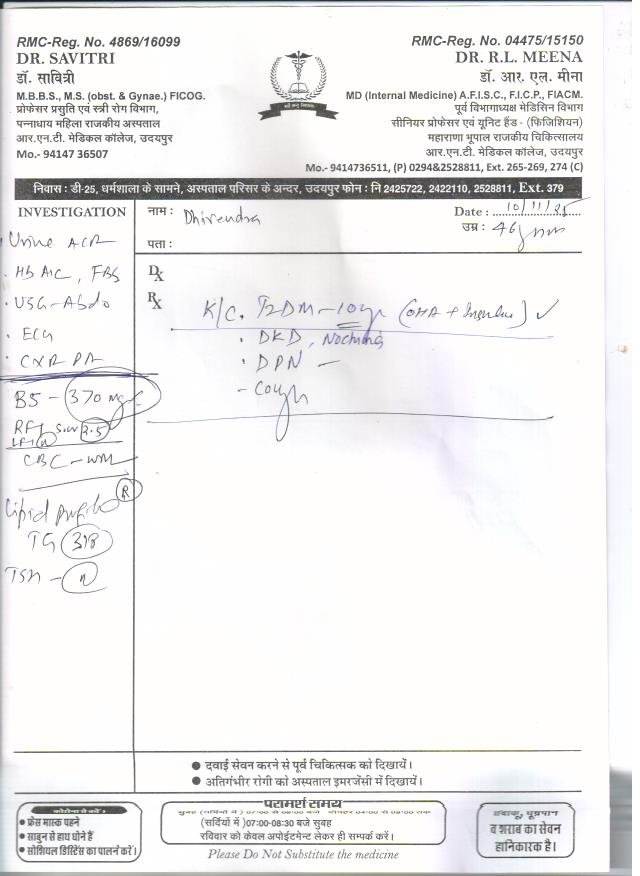 RMC-Reg. No. 4869/16099
DR. SAVITRI
डॉ. सावित्री
M.B.B.S., M.S. (obst. & Gynae.) FICOG.
प्रोफेसर प्रसुति एवं स्त्री रोग विभाग,
पन्नाधाय महिला राजकीय अस्पताल
आर.एन.टी. मेडिकल कॉलेज, उदयपुर
Mo.- 94147 36507
RMC-Reg. No. 04475/15150
DR. R.L. MEENA
डॉ. आर. एल. मीना
MD (Internal Medicine) A.F.I.S.C., F.I.C.P., FIACM.
पूर्व विभागाध्यक्ष मेडिसिन विभाग
सीनियर प्रोफेसर एवं यूनिट हैंड - (फिजिशियन)
महाराणा भूपाल राजकीय चिकित्सालय
आर.एन.टी. मेडिकल कॉलेज, उदयपुर
Mo.- 9414736511, (P) 0294&2528811, Ext. 265-269, 274 (C)
निवास : डी-25, धर्मशाला के सामने, अस्पताल परिसर के अन्दर, उदयपुर फोन : नि 2425722, 2422110, 2528811, Ext. 379
INVESTIGATION
नाम : Dhirendra
Date : 10/11/25
पता :
उम्र : 46
Urine ACR
HbA1C, FBS
USG-Abdo
ECG
CXR PA
BS - 370 mg
RFT S.cr 2.5
LFT n
CBC -
Lipid profile
TG 318
TSH - n
DX
RX
K/C. T2DM - 10yr (OHA + Insulin) ✓
DKD, Nocturia
DPN -
- Cough
● दवाई सेवन करने से पूर्व चिकित्सक को दिखायें।
● अतिगंभीर रोगी को अस्पताल इमरजेंसी में दिखायें।
● फ्रेस मास्क पहने
● साबुन से हाथ धोने हैं
● सोशियल डिस्टिेंस का पालने करें।
परामर्श समय
(सर्दियों में) 07:00-08:30 बजे सुबह
रविवार को केवल अपोईटमेन्ट लेकर ही सम्पर्क करें।
Please Do Not Substitute the medicine
व शराब का सेवन
हानिकारक है।